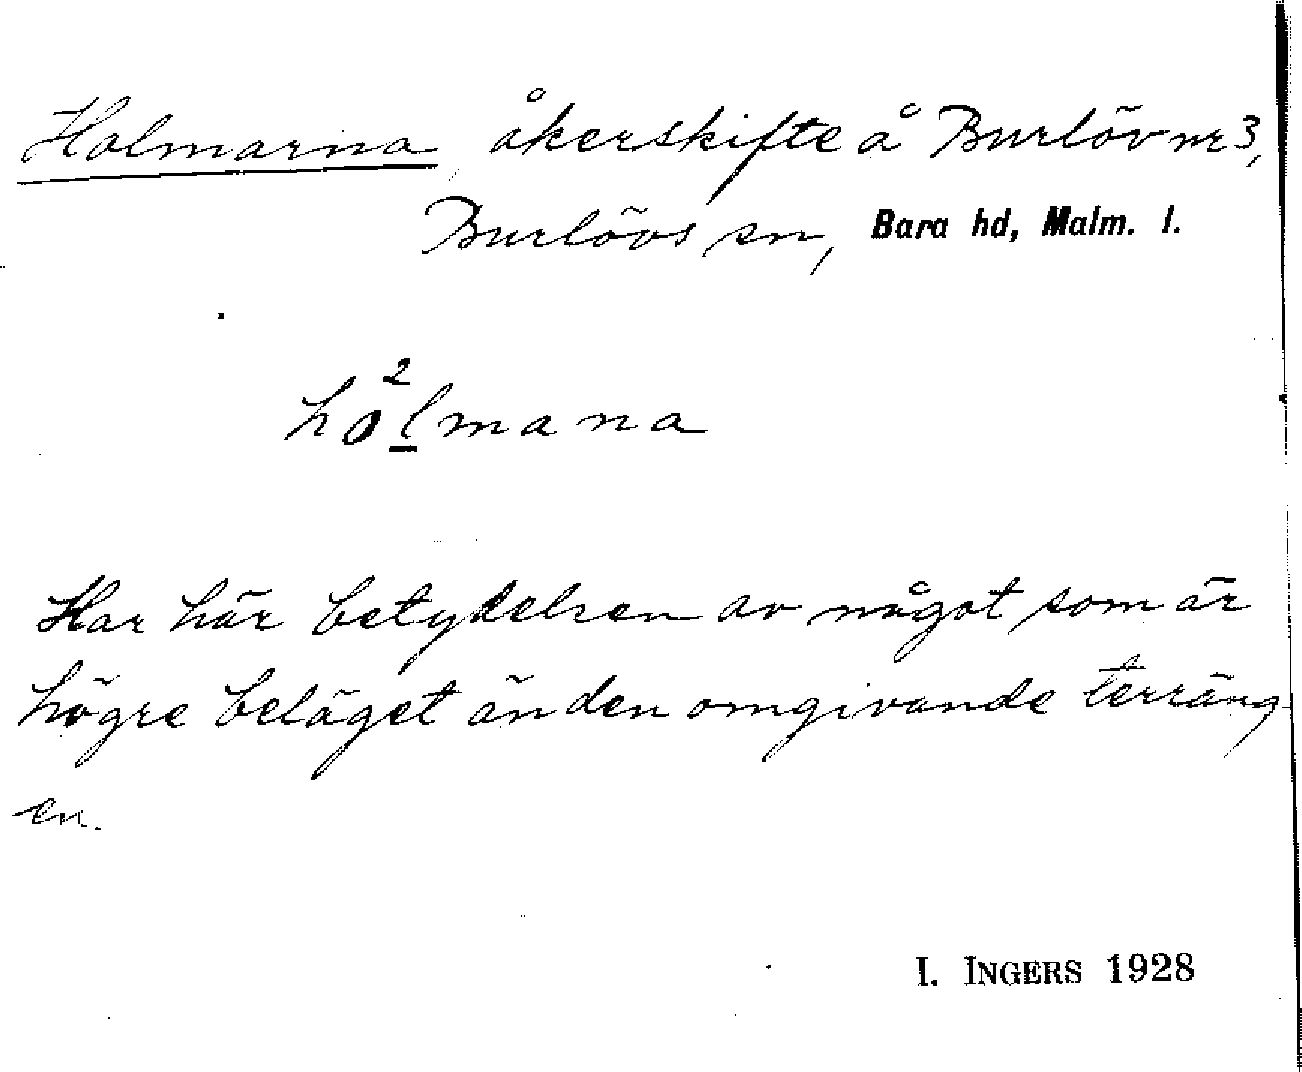 Holmarna, åkerskifte å Burlöv nr 3,
Burlövs sn, Bara hd, Malm. l.
ho²lmana
Har här betydelsen av något som är
högre beläget än den omgivande terräng
en.
I. INGERS 1928